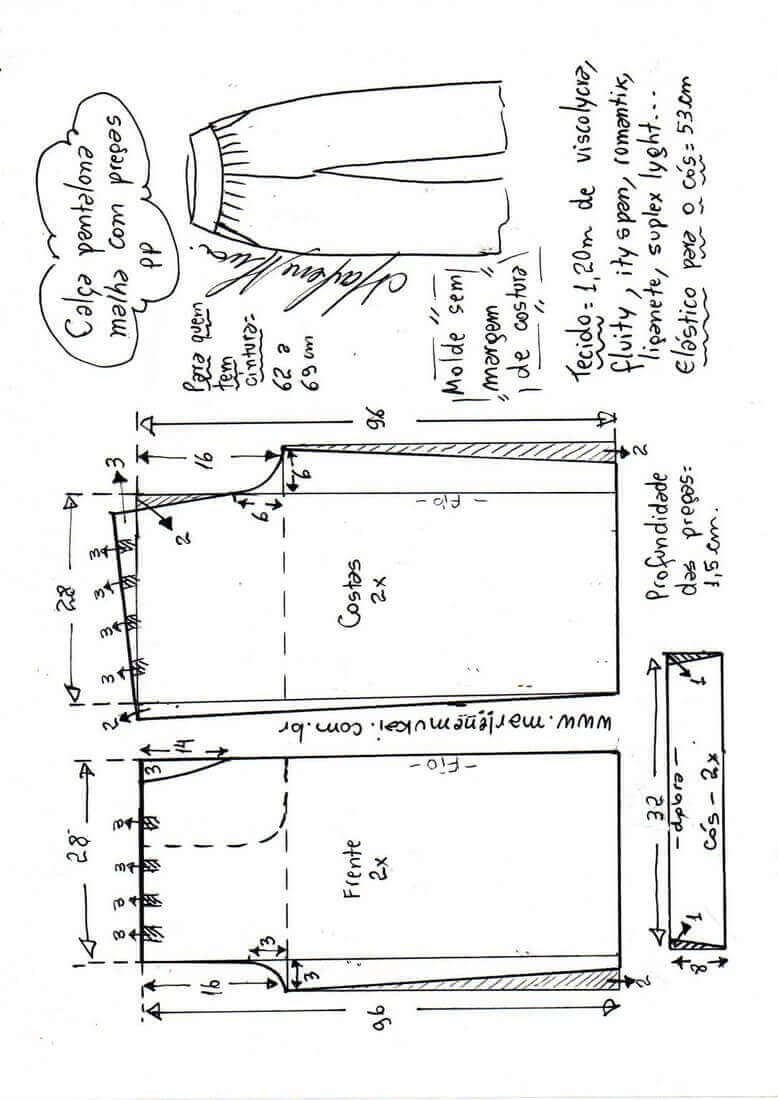 Calça pantalona
malha com pregas
PP
Para quem
tem
cintura=
62 a
69 cm
Molde sem
margem
de costura
Tecido = 1,20m de viscolycra,
fluity, ity span, romantix,
liganete, suplex lyght...
Elástico para o cós = 53cm
96
16
3
2
28
3
3
3
3
2
6
6
- Fio -
2
Costas
2x
Profundidade
das pregas:
1,5 cm.
www.marlenemukai.com.br
14
3
28
3
3
3
3
- Fio -
Frente
2x
3
3
16
96
2
32
1
- dobra -
cós - 2x
1
8